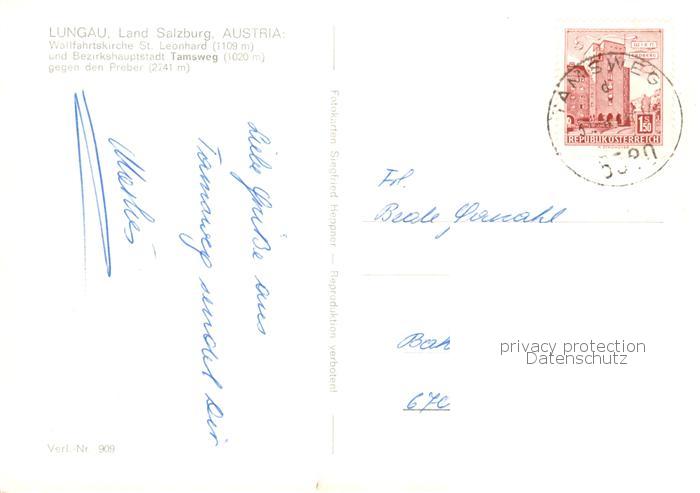 LUNGAU, Land Salzburg, AUSTRIA:
Wallfahrtskirche St. Leonhard (1109 m)
und Bezirkshauptstadt Tamsweg (1020 m)
gegen den Preber (2741 m)
Liebe Grüße aus
Tamsweg sendet Dir
Fotokarten Siegfried Heppner — Reproduktion verboten!
TAMSWEG
5580
1.50
REPUBLIK ÖSTERREICH
Frl.
Beate
Bak
670
privacy protection
Datenschutz
Verl.-Nr. 909